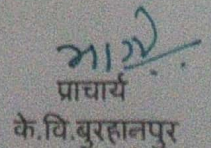 प्राचार्य
के.वि.बुरहानपुर